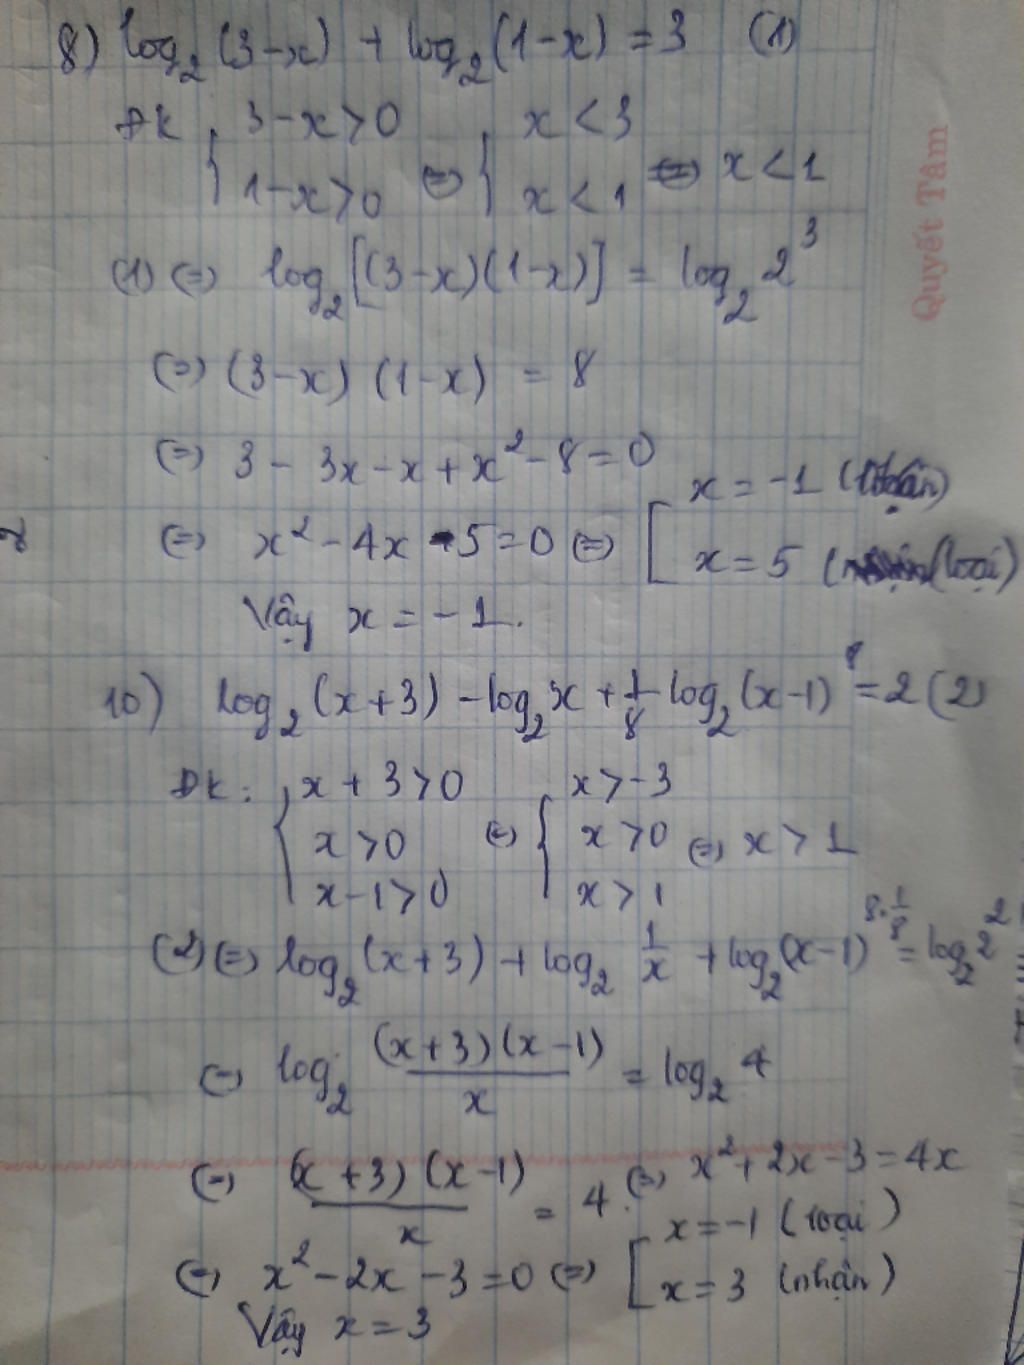 8) log₂(3-x) + log₂(1-x) = 3 (1)
ĐK { 3-x>0 ⇔ { x<3
1-x>0 x<1 ⇔ x<1
Quyết Tâm
(1) ⇔ log₂[(3-x)(1-x)] = log₂2³
⇔ (3-x)(1-x) = 8
⇔ 3 - 3x - x + x² - 8 = 0
⇔ x² - 4x - 5 = 0 ⇔ [ x = -1 (nhận)
x = 5 (loại)
Vậy x = -1.
10) log₂(x+3) - log₂x + 1/8 log₂(x-1)⁸ = 2 (2)
ĐK: { x+3>0 ⇔ { x>-3
x>0 x>0 ⇔ x>1
x-1>0 x>1
(2) ⇔ log₂(x+3) + log₂ 1/x + log₂(x-1)^(8·1/8) = log₂2²
⇔ log₂ (x+3)(x-1)/x = log₂4
⇔ (x+3)(x-1)/x = 4. ⇔ x² + 2x - 3 = 4x
⇔ x² - 2x - 3 = 0 ⇔ [ x = -1 (loại)
x = 3 (nhận)
Vậy x = 3